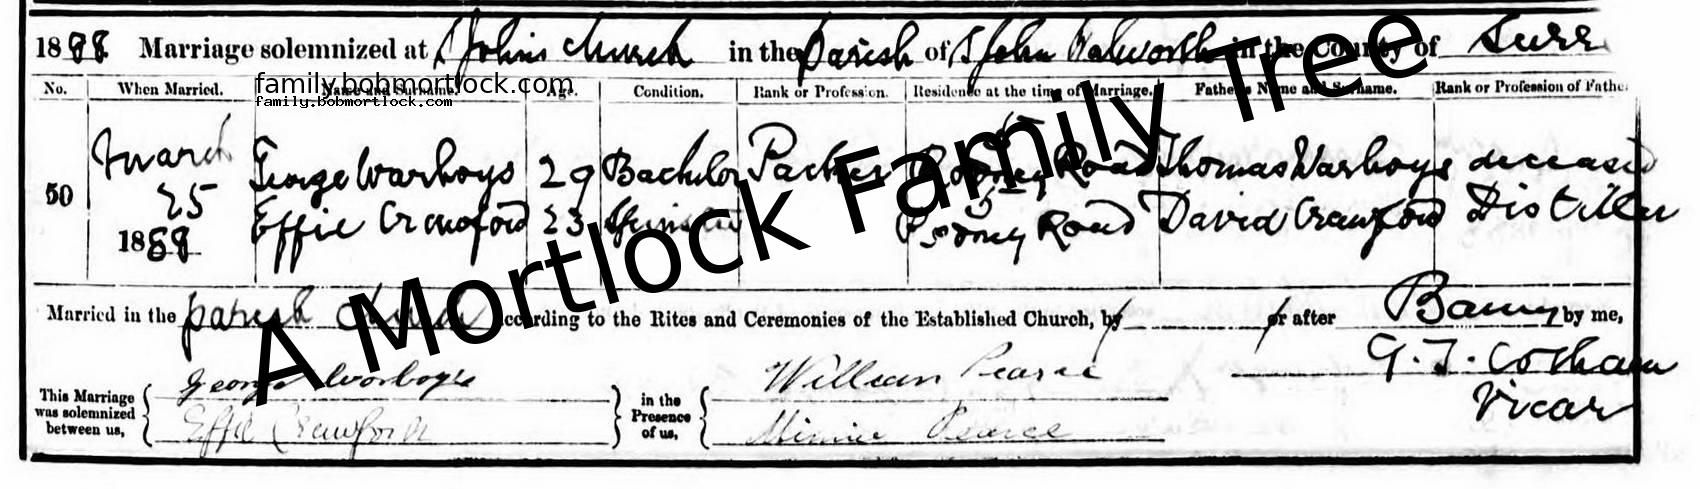 1888 Marriage solemnized at St Johns Church in the Parish of St John Walworth in the County of Surr
family.bobmortlock.com
family.bobmortlock.com
No. When Married. Name and Surname. Age. Condition. Rank or Profession. Residence at the time of Marriage. Father's Name and Surname. Rank or Profession of Father
50 March 25 1888 George Warboys 29 Bachelor Packer Rodney Road Thomas Warboys deceased
Effie Crawford 23 Spinster 5 Rodney Road David Crawford Distiller
A Mortlock Family Tree
Married in the parish church according to the Rites and Ceremonies of the Established Church, by or after Banns by me,
G. T. Cotham
Vicar
This Marriage was solemnized between us, George Worboys Effie Crawford in the Presence of us, William Pearce Minnie Pearce